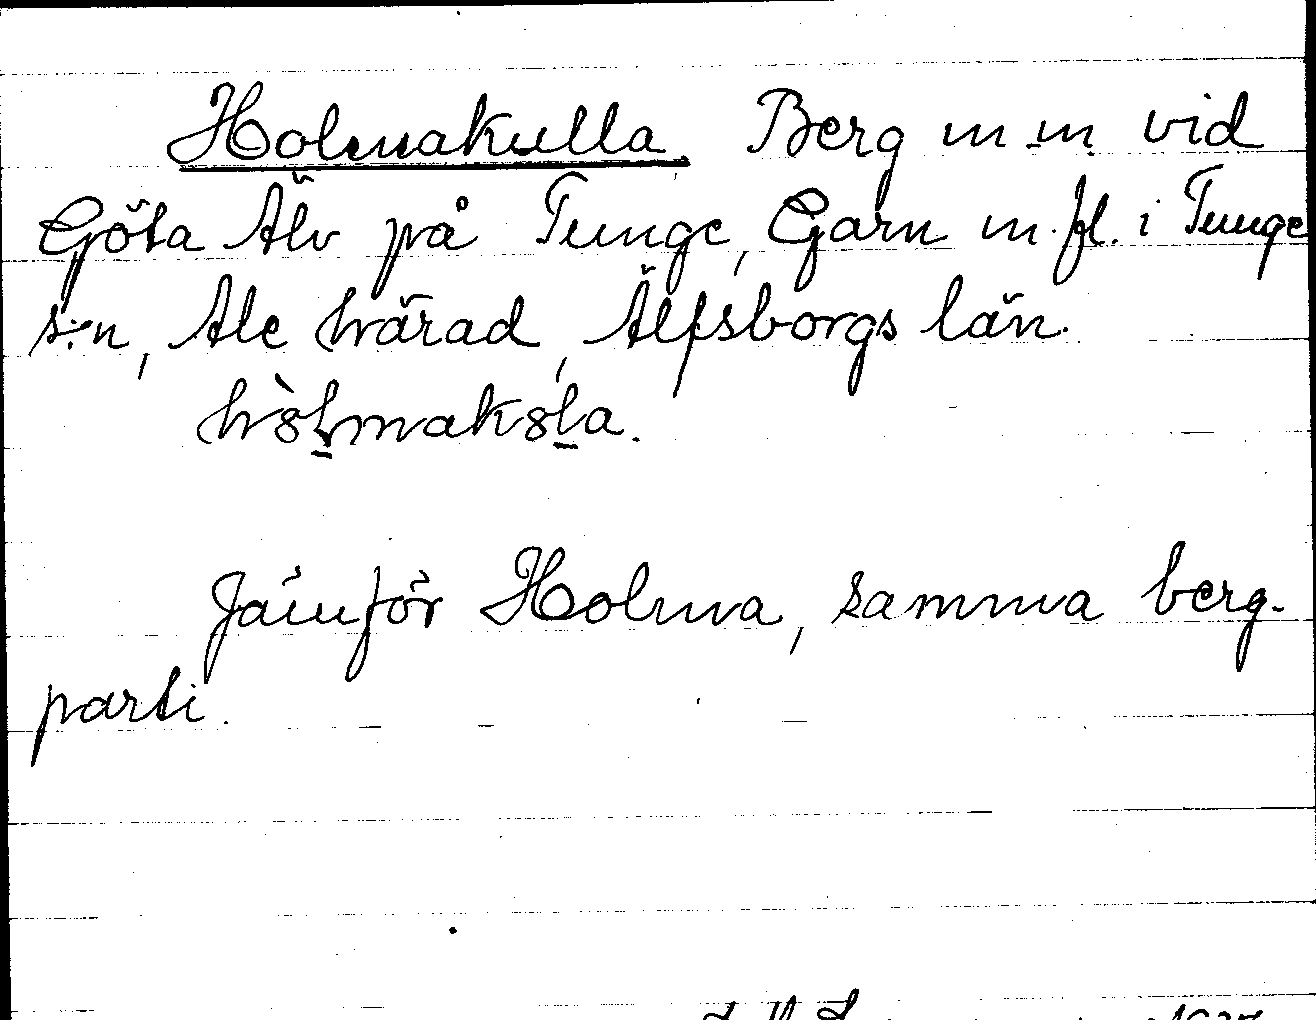 Holmakulla. Berg m.m. vid
Göta Älv på Tunge, Garn m.fl. i Tunge
s:n, Ale härad, Älfsborgs län.
hòlmaksla.
Jämför Holma, samma berg-
parti.